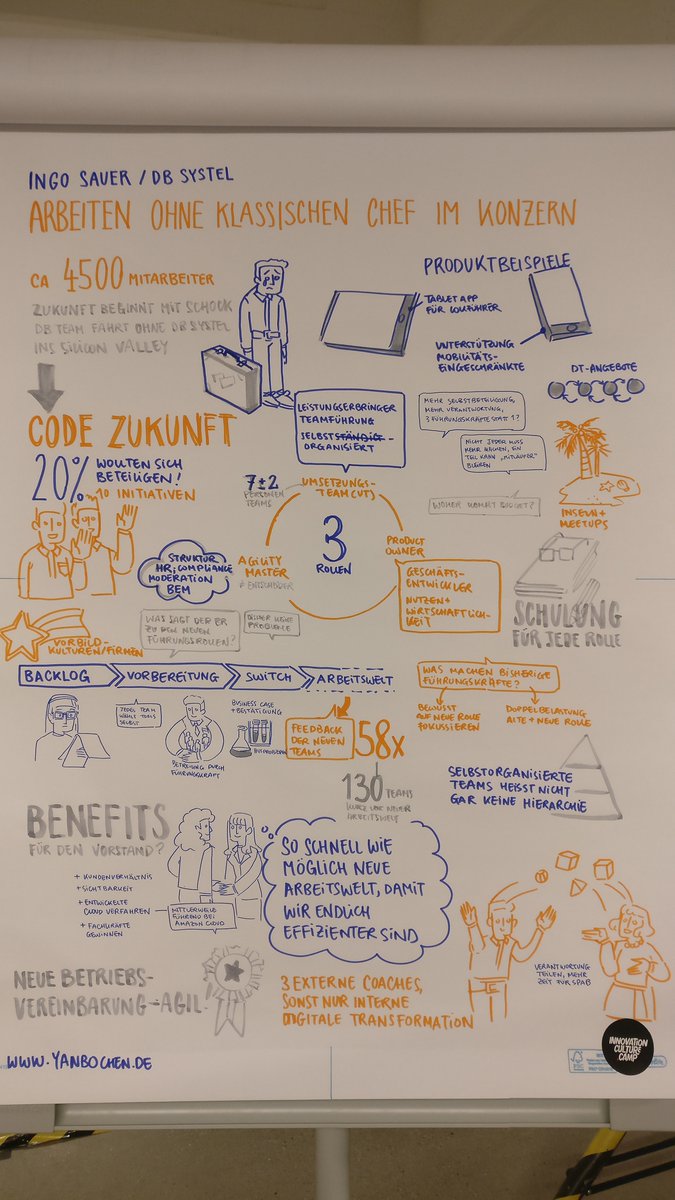 INGO SAUER / DB SYSTEL
ARBEITEN OHNE KLASSISCHEN CHEF IM KONZERN
CA 4500 MITARBEITER
ZUKUNFT BEGINNT MIT SCHOCK
DB TEAM FÄHRT OHNE DB SYSTEL
INS SILICON VALLEY
PRODUKTBEISPIELE
TABLET APP
FÜR LOKFÜHRER
UNTERSTÜTZUNG
MOBILITÄTS-
EINGESCHRÄNKTE
DT-ANGEBOTE
CODE ZUKUNFT
20% WOLLTEN SICH
BETEILIGEN!
10 INITIATIVEN
LEISTUNGSERBRINGER
TEAMFÜHRUNG
SELBSTSTÄNDIG-
ORGANISIERT
MEHR SELBSTBETEILIGUNG,
MEHR VERANTWORTUNG,
3 FÜHRUNGSKRÄFTE STATT 1?
NICHT JEDER MUSS
MEHR MACHEN, EIN
TEIL KANN "MITLÄUFER"
BLEIBEN
WOHER KOMMT BUDGET?
INSELN +
MEETUPS
7±2
PERSONEN
TEAMS
UMSETZUNGS-
TEAM (UT)
3
ROLLEN
AGILITY
MASTER
≠ ENTSCHEIDER
PRODUCT
OWNER
GESCHÄFTS-
ENTWICKLER
NUTZEN +
WIRTSCHAFTLICH-
KEIT
STRUKTUR
HR; COMPLIANCE
MODERATION
BEM
SCHULUNG
FÜR JEDE ROLLE
VORBILD-
KULTUREN/FIRMEN
WAS SAGT DER BR
ZU DEN NEUEN
FÜHRUNGSROLLEN?
BISHER KEINE
PROBLEME
BACKLOG
VORBEREITUNG
SWITCH
ARBEITSWELT
JEDES TEAM
WÄHLT TOOLS
SELBST
BETREUUNG DURCH
FÜHRUNGSKRAFT
BUSINESS CASE
+ BESTÄTIGUNG
FEEDBACK
DER NEUEN
TEAMS
58x
130 TEAMS
WAS MACHEN BISHERIGE
FÜHRUNGSKRÄFTE?
BEWUSST
AUF NEUE ROLLE
FOKUSSIEREN
DOPPELBELASTUNG
ALTE + NEUE ROLLE
SELBSTORGANISIERTE
TEAMS HEISST NICHT
GAR KEINE HIERARCHIE
BENEFITS
FÜR DEN VORSTAND?
+ KUNDENVERHÄLTNIS
+ SICHTBARKEIT
+ ENTWICKELTE
CLOUD VERFAHREN
+ FACHKRÄFTE
GEWINNEN
MITTLERWEILE
FÜHREND BEI
AMAZON CLOUD
SO SCHNELL WIE
MÖGLICH NEUE
ARBEITSWELT, DAMIT
WIR ENDLICH
EFFIZIENTER SIND
VERANTWORTUNG
TEILEN, MEHR
ZEIT FÜR SPAß
NEUE BETRIEBS-
VEREINBARUNG - AGIL!
3 EXTERNE COACHES,
SONST NUR INTERNE
DIGITALE TRANSFORMATION
WWW.YANBOCHEN.DE
INNOVATION
CULTURE
CAMP